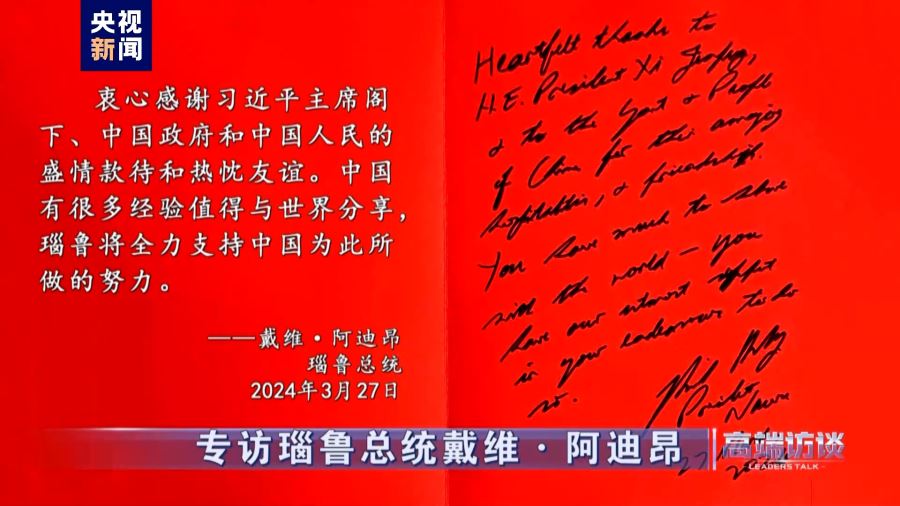 央视
新闻
衷心感谢习近平主席阁
下、中国政府和中国人民的
盛情款待和热忱友谊。中国
有很多经验值得与世界分享，
瑙鲁将全力支持中国为此所
做的努力。
——戴维·阿迪昂
瑙鲁总统
2024年3月27日
Heartfelt thanks to
H.E. President Xi Jinping,
& to the Govt & People
of China for the amazing
hospitalities, & friendship.
You have much to share
with the world – you
have our utmost support
in your endeavours to do
so.
President
Nauru
27
专访瑙鲁总统戴维·阿迪昂
高端访谈
LEADERS TALK